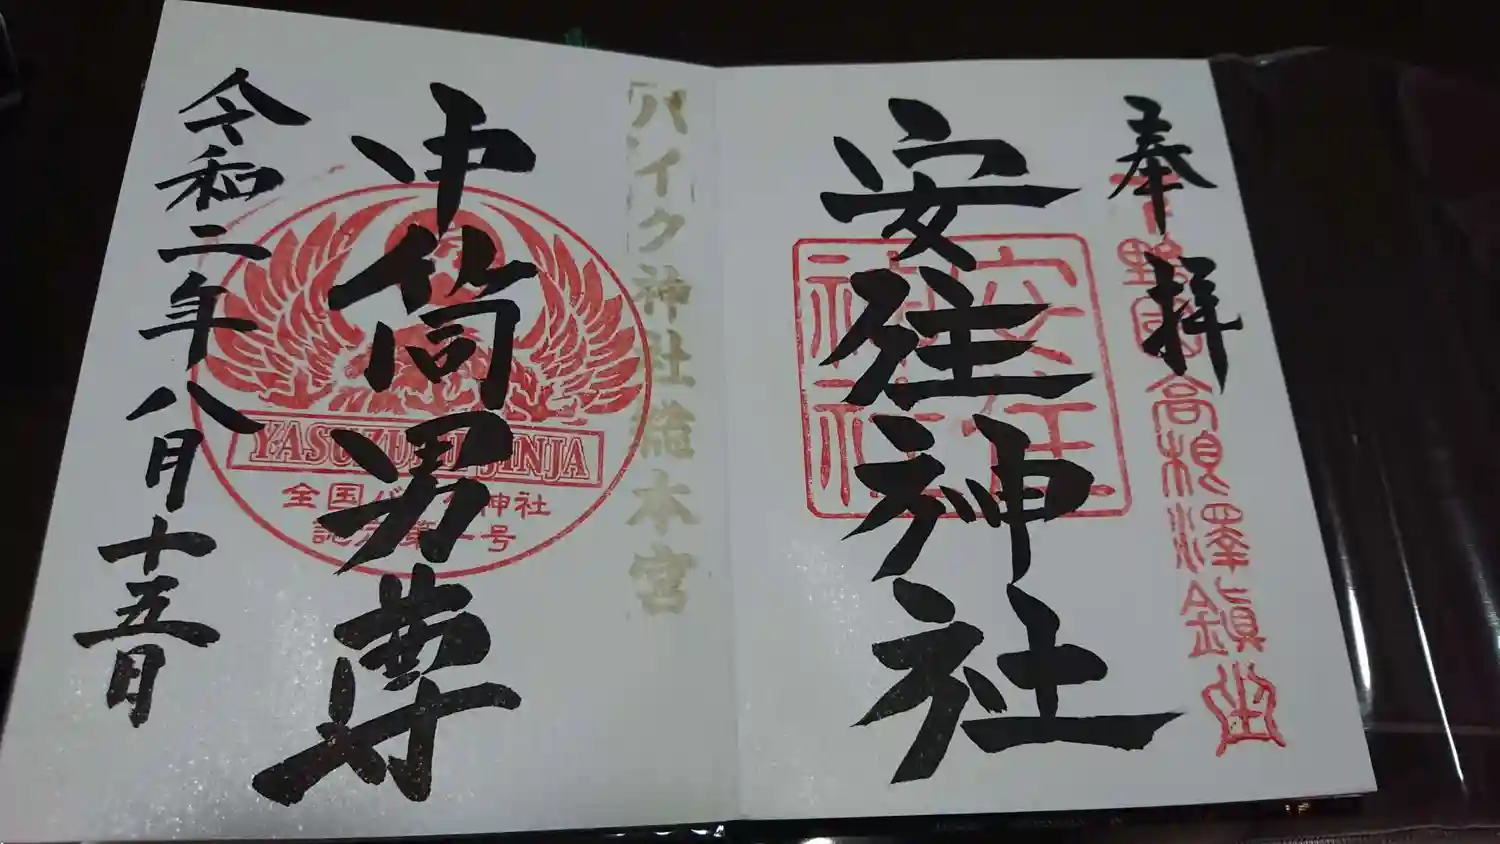 奉拝
下野国高根澤鎮座
安住神社
安住神社
バイク神社総本宮
中筒男尊
YASUZUMI JINJA
全国バイク神社
認定第一号
令和二年八月十五日